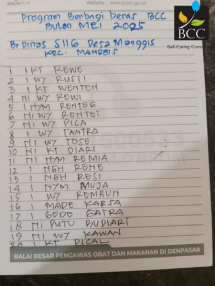 BCC
Bali Caring Community
Program Berbagi Beras BCC
Bulan MEI 2025
Br Dinas S116 Desa Manggis
KEC. MANGGIS
1 I KT REWE
2 I WY RUSTI
3 I KT WENTEN
4 NI WY REWI
5 I NYM RENTEG
6 NI WY RENTET
7 NI WY PICA
8 I WY TANTRA
9 NI WY TOSE
10 NI KT DIARI
11 NI NYM REMIA
12 I NGH RENE
13 I NGH RESI
14 I NYM MUJA
15 I WY REMBUN
16 I MADE KARSA
17 I GEDE GATRA
18 NI PUTU BUDIARI
19 NI WY KAWAN
20 I KT PICAL
BALAI BESAR PENGAWAS OBAT DAN MAKANAN DI DENPASAR